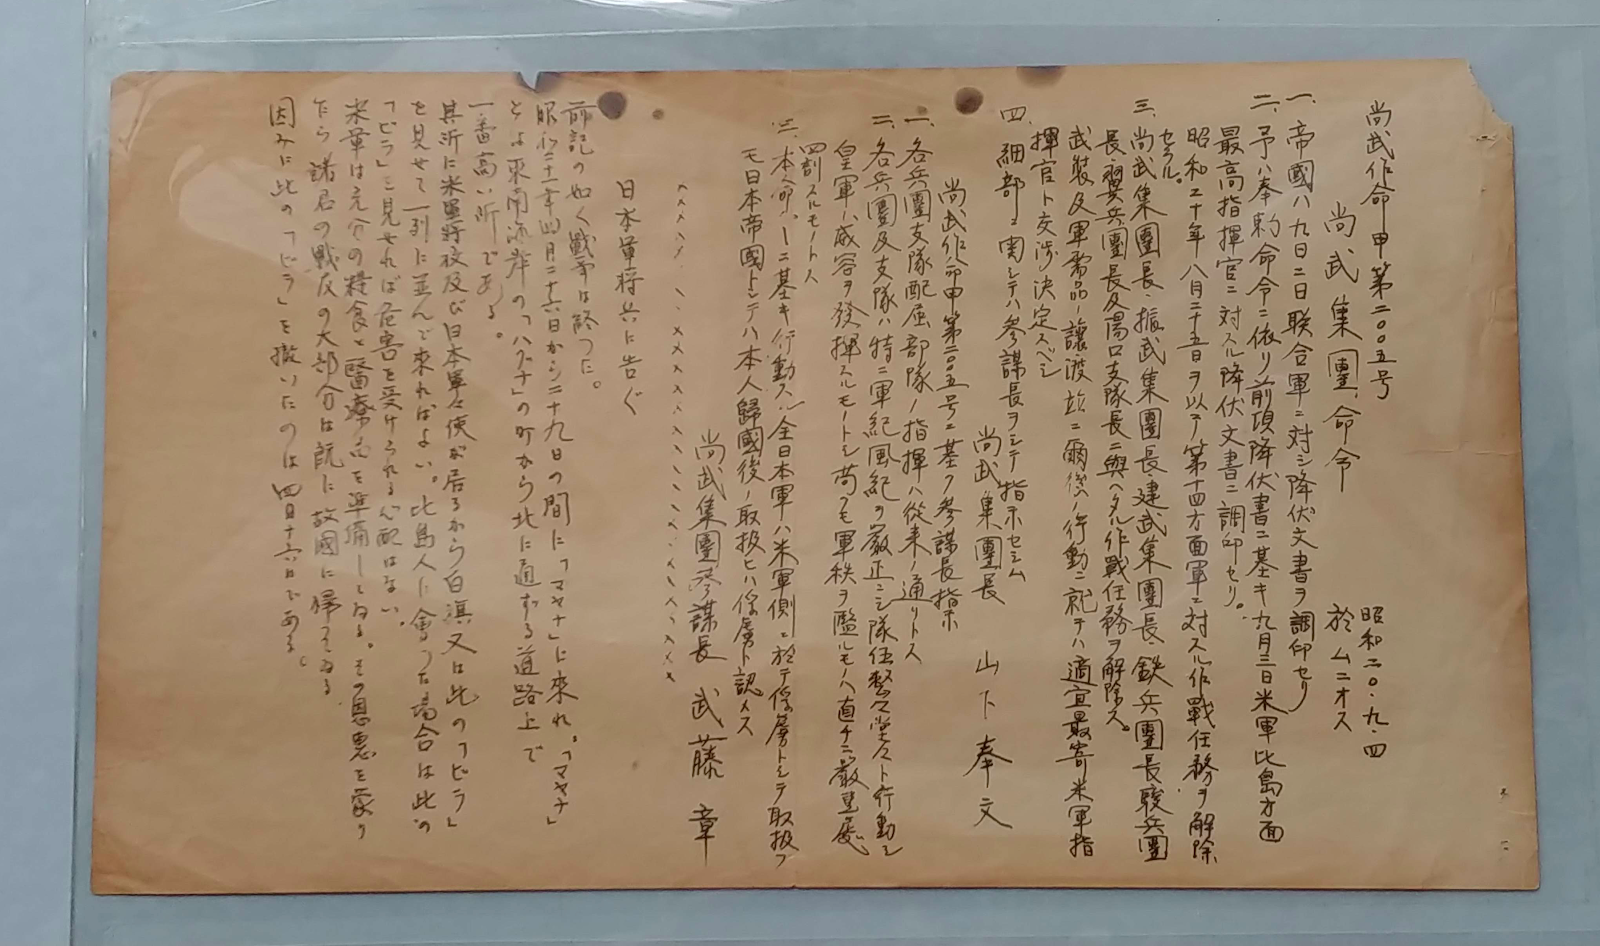 尚武作命甲第二〇〇五号
尚武集團命令
昭和二〇・九・四
於ムニオス
一、帝國ハ九日二日联合軍ニ対シ降伏文書ヲ調印セリ
二、予ハ奉勅命令ニ依リ前項降伏書ニ基キ九月三日米軍比島方面
最高指揮官ニ対スル降伏文書ニ調印セリ。
昭和二十年八月二十五日ヲ以テ第十四方面軍ニ対スル作戰任務ヲ解除
セラル。
三、尚武集團長、振武集團長、建武集團長、鉄兵團長、駿兵團
長、翼兵團長及湯口支隊長ニ與ヘタル作戰任務ヲ解除ス。
武裝及軍需品ノ讓渡並ニ爾後ノ行動ニ就テハ適宜最寄米軍指
揮官ト交渉決定スベシ
四、細部ニ関シテハ参謀長ヲシテ指示セシム
尚武集團長 山下奉文
尚武作命甲第二〇五号ニ基ク参謀長指示
一、各兵團支隊配屈部隊ノ指揮ハ從来ノ通リトス
二、各兵團及支隊ハ特ニ軍紀風紀ヲ嚴正ニシ隊伍整々堂々ト行動シ
皇軍ノ威容ヲ發揮スルモノトシ苟クモ軍秩ヲ濫ルモノハ直チニ嚴重處
罰スルモノトス
三、本命ノ一ニ基キ行動スル全日本軍ハ米軍側ニ於テ俘虜トシテ取扱フ
モ日本帝國トシテハ本人歸國後ノ取扱ヒハ俘虜ト認メス
尚武集團参謀長 武藤章
××××、、、××××××××××××、××
日本軍将兵に告ぐ
前記の如く戰争は終つた。
昭和二十一年四月二十六日から二十九日の間に「マヤナ」に來れ。「マヤナ」
とは東南海岸の「ハグナ」の町から北に通ずる道路上で
一番高い所である。
其所に米軍将校及び日本軍々使が居るから白旗又は此の「ビラ」
を見せて一列に並んで來ればよい。比島人に會つた場合は此の
「ビラ」を見せれば危害を受けられる心配はない。
米軍は充分の糧食と醫療品を準備してゐる。その恩惠を蒙り
たる諸君の戰友の大部分は既に故國に帰つてゐる
因みに此の「ビラ」を撒いたのは四月十六日である。